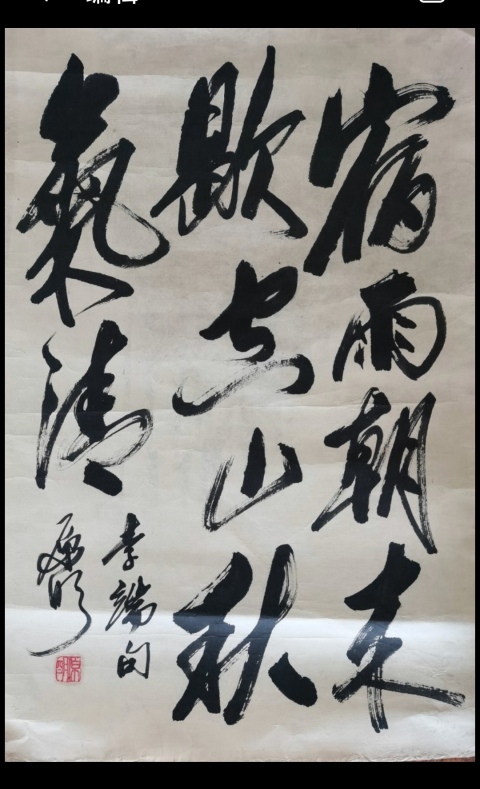 宿雨朝来
歇空山秋
氣清
李端句
原明